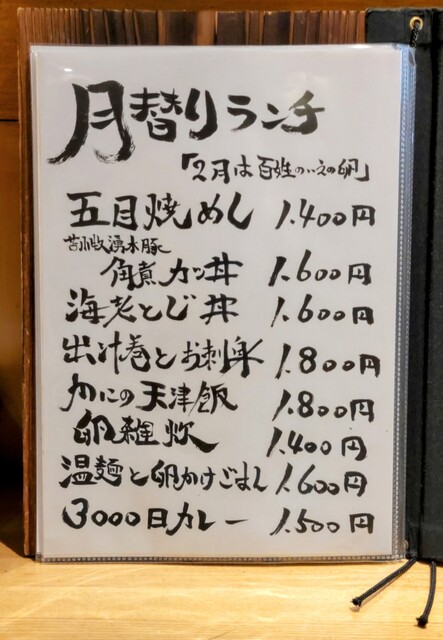 月替りランチ
「2月は百姓のいえの卵」
五目焼めし 1.400円
苫小牧湧水豚
角煮カツ丼 1.600円
海老とじ丼 1.600円
出汁巻とお刺身 1.800円
かにの天津飯 1.800円
卵雑炊 1.400円
温麺と卵かけごはん 1.600円
3000日カレー 1.500円